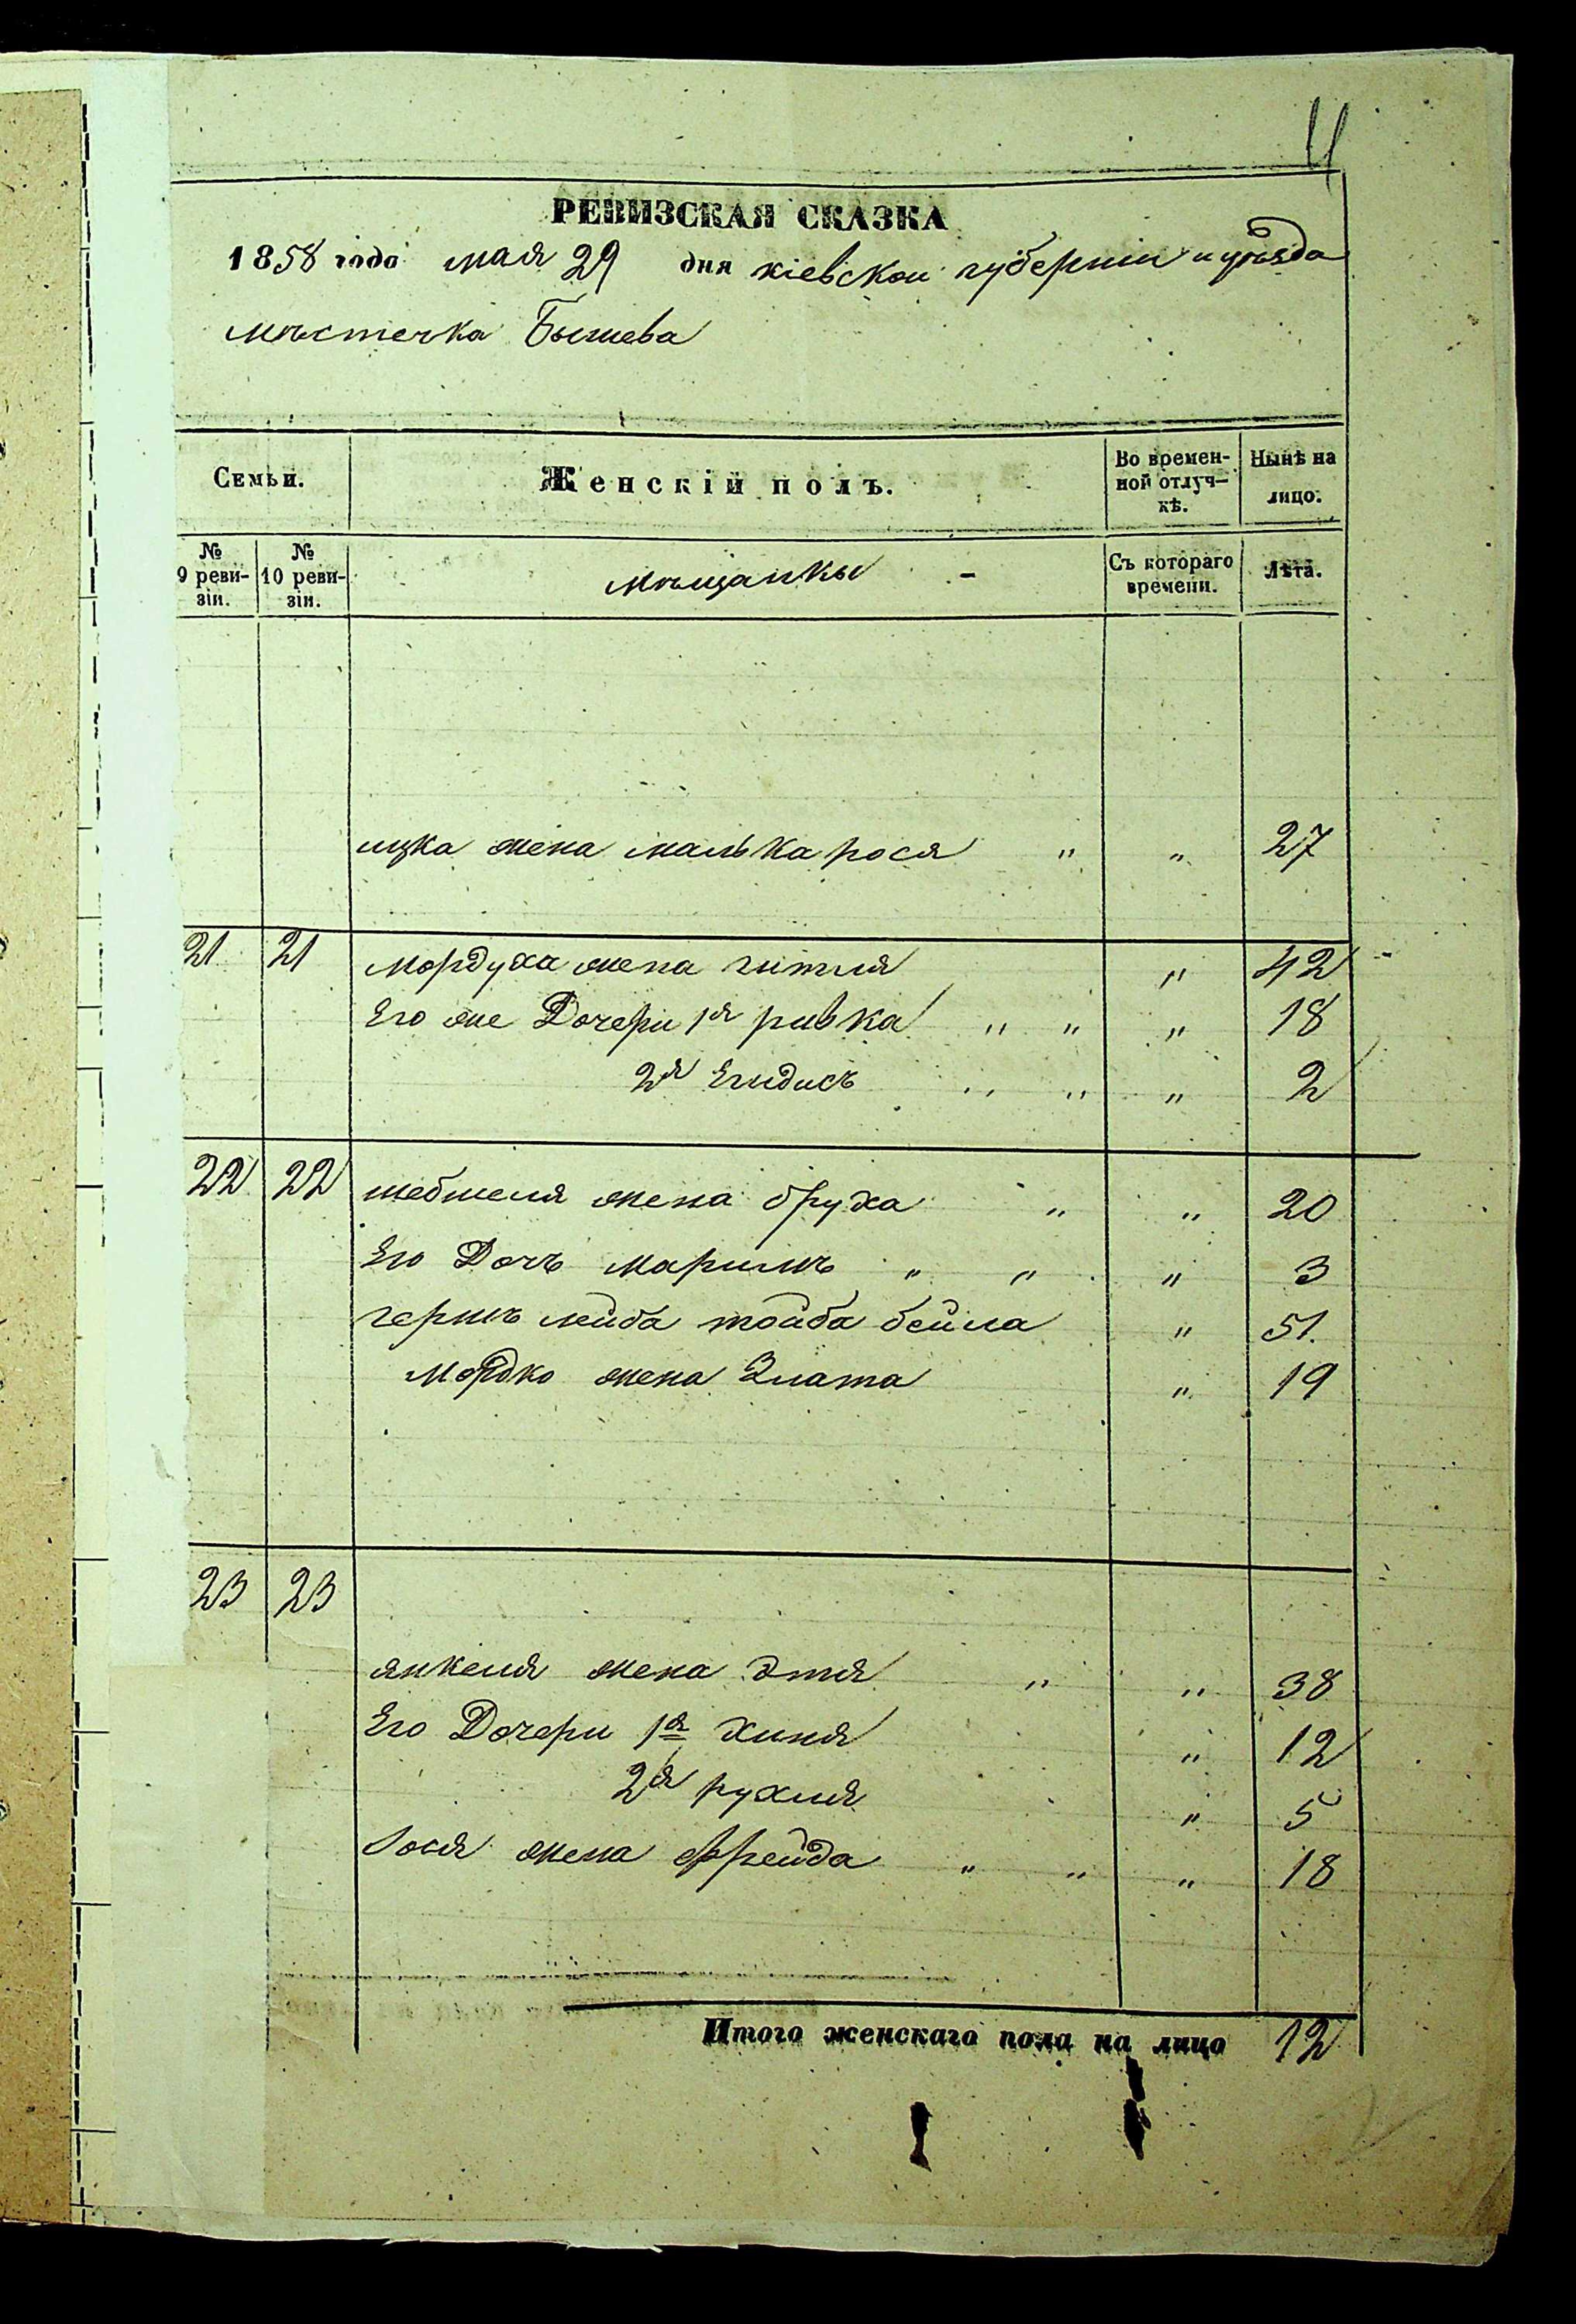 11
РЕВИЗСКАЯ СКАЗКА
1858 года мая 29 дня кіевской губерніи и уѣзда
мѣстечка Бышева
Семьи. Женскій полъ. Во времен-ной отлуч-кѣ. Нынѣ на лицо.
№ 9 реви-зіи. № 10 реви-зіи. мѣщанки - Съ котораго времени. Лѣта.
ицка жена малька рося " " 27
21 21 Мордуха жена гитля " 42
Его же Дочери 1я ривка " " " 18
2я Егидисъ " " " 2
22 22 шебшеля жена бруха " " 20
Его Дочь маримъ " " " 3
гершъ лейба тойба бейла " 51.
Мордко жена Злата " 19
23 23
янкеля жена Этя " " 38
Его Дочери 1я хиня " 12
2я рухля " 5
жена фрейда " " " 18
Итого женскаго пола на лицо 12